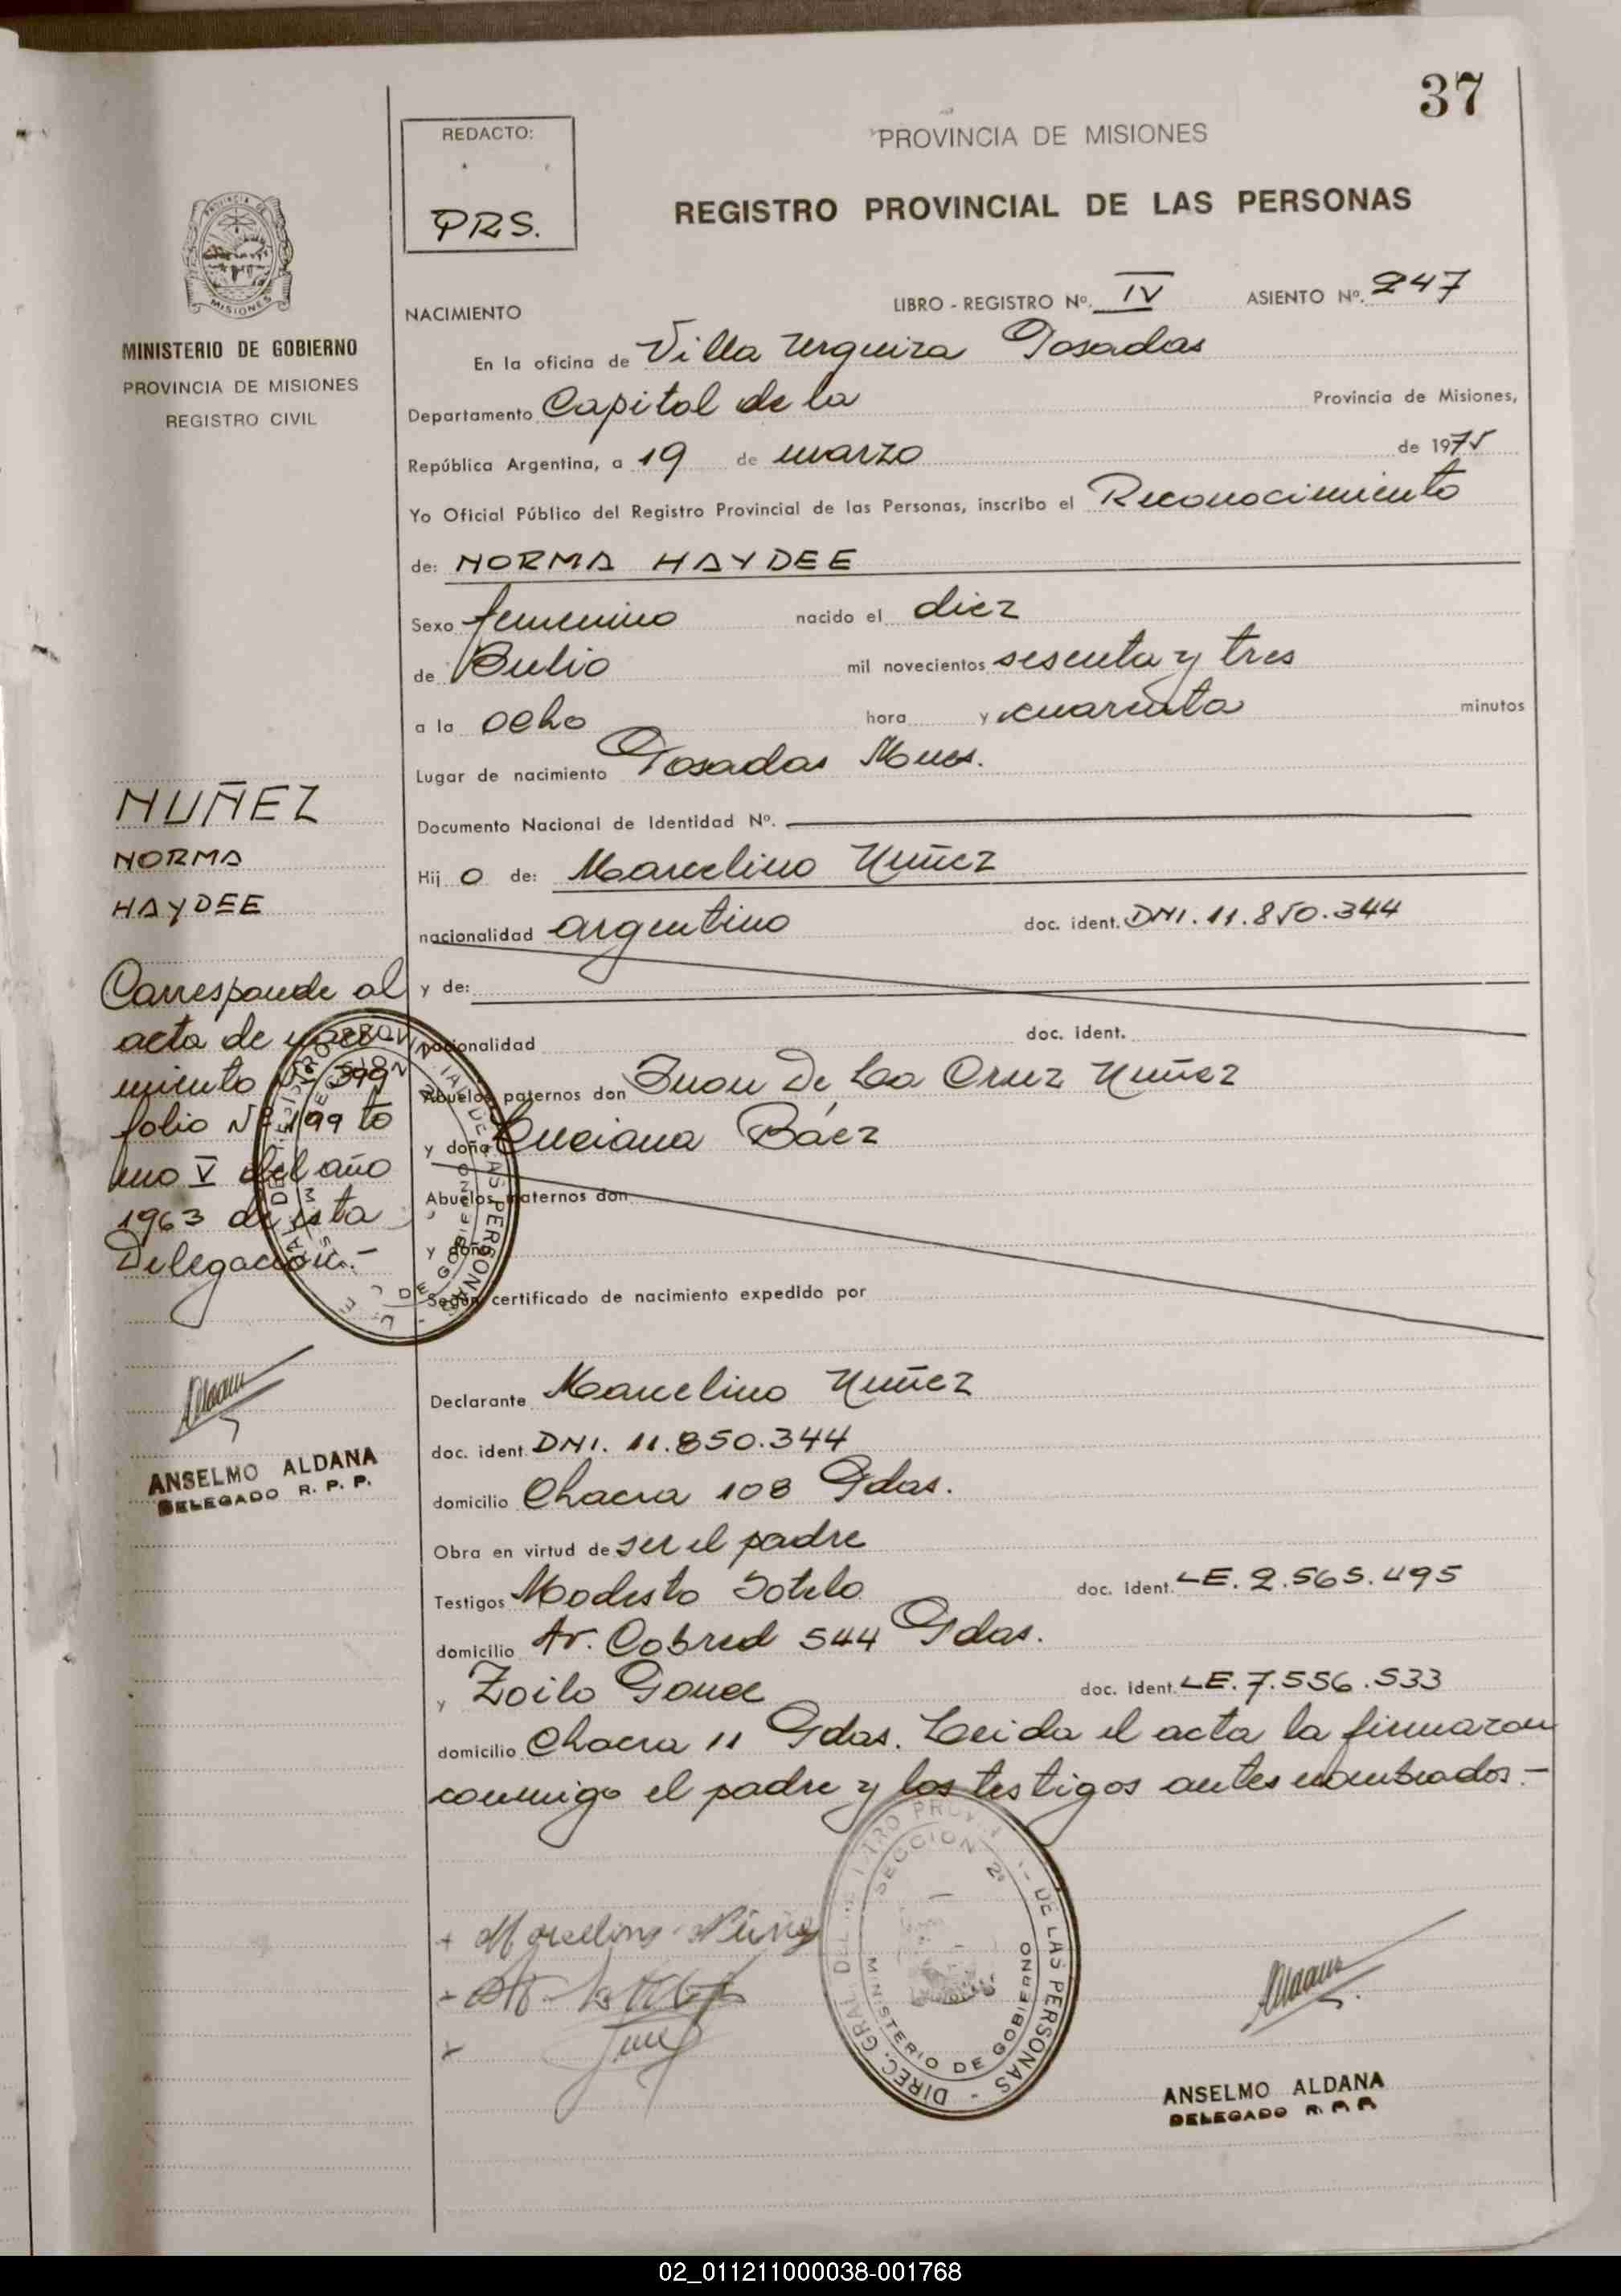 37
REDACTO:
PRS.
PROVINCIA DE MISIONES
REGISTRO PROVINCIAL DE LAS PERSONAS
MISIONES
MINISTERIO DE GOBIERNO
PROVINCIA DE MISIONES
REGISTRO CIVIL
NACIMIENTO
LIBRO - REGISTRO Nº. IV ASIENTO Nº. 247
En la oficina de Villa Urquiza Posadas
Departamento Capital de la Provincia de Misiones,
República Argentina, a 19 de marzo de 1975
Yo Oficial Público del Registro Provincial de las Personas, inscribo el Reconocimiento
de: NORMA HAYDEE
Sexo femenino nacido el diez
de Julio mil novecientos sesenta y tres
a la ocho hora y cuarenta minutos
Lugar de nacimiento Posadas Mnes.
Documento Nacional de Identidad Nº.
Hij o de: Marcelino Nuñez
nacionalidad argentino doc. ident. DNI. 11.850.344
y de:
nacionalidad doc. ident.
Abuelos paternos don Juan De La Cruz Nuñez
y doña Luciana Báez
Abuelos maternos don
y doña
Según certificado de nacimiento expedido por
Declarante Marcelino Nuñez
doc. ident. DNI. 11.850.344
domicilio Chacra 108 Pdas.
Obra en virtud de ser el padre
Testigos Modesto Sotelo doc. ident. LE. 2.565.495
domicilio Av. Cabred 544 Pdas.
y Zoilo doc. ident. LE. 7.556.533
domicilio Chacra 11 Pdas. Leida el acta la firmaron
conmigo el padre y los testigos antes nombrados.-
NUÑEZ
NORMA
HAYDEE
Corresponde al
acta de naci
miento Nº 399
folio Nº 199 to
mo V del año
1963 de esta
Delegación.-
ANSELMO ALDANA
DELEGADO R. P. P.
Marcelino Núñez
DIREC. GRAL DEL REGISTRO PROVINCIAL DE LAS PERSONAS
SECCION 2º
MINISTERIO DE GOBIERNO
ANSELMO ALDANA
DELEGADO R. P. P.
02_011211000038-001768